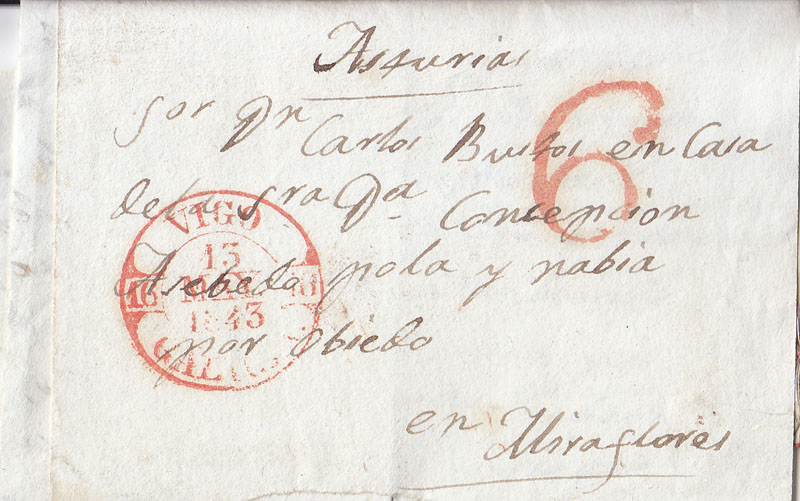 Asturias
6
Sor Dn Carlos Bustos en Casa
de la Sra Da Concepcion
Asebedo pola y nabia
por Obiedo
en Miraflores
VIGO
13
16 MAY 16
1843
GALICIA